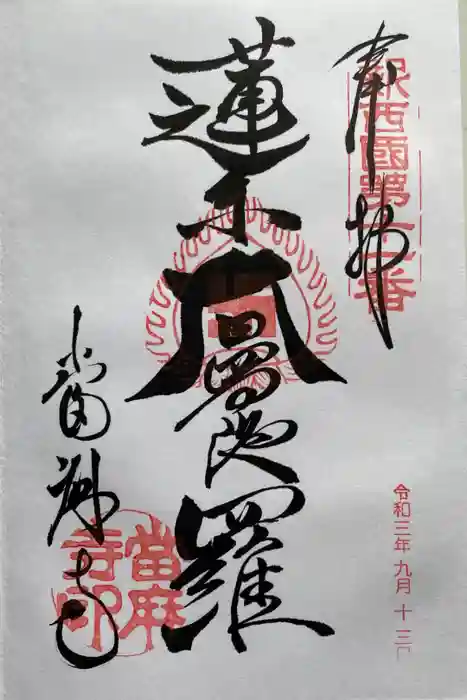 奉拝
新西国第十一番
蓮糸大曼陀羅
當麻寺
當麻寺印
令和三年九月十三